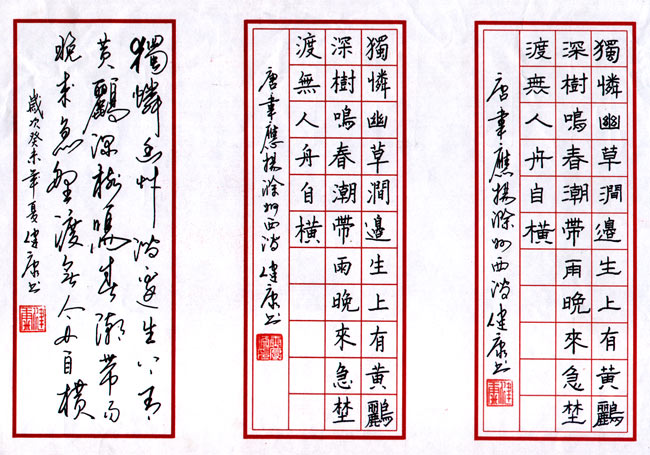 獨憐幽草澗邊生上有黃鸝
深樹鳴春潮帶雨晚來急埜
渡無人舟自橫
唐韋應物滁州西澗健康書
獨憐幽草澗邊生上有黃鸝
深樹鳴春潮帶雨晚來急埜
渡無人舟自橫
唐韋應物滁州西澗健康書
獨憐幽草澗邊生上有
黃鸝深樹鳴春潮帶雨
晚來急野渡無人舟自橫
歲次癸未年夏健康書